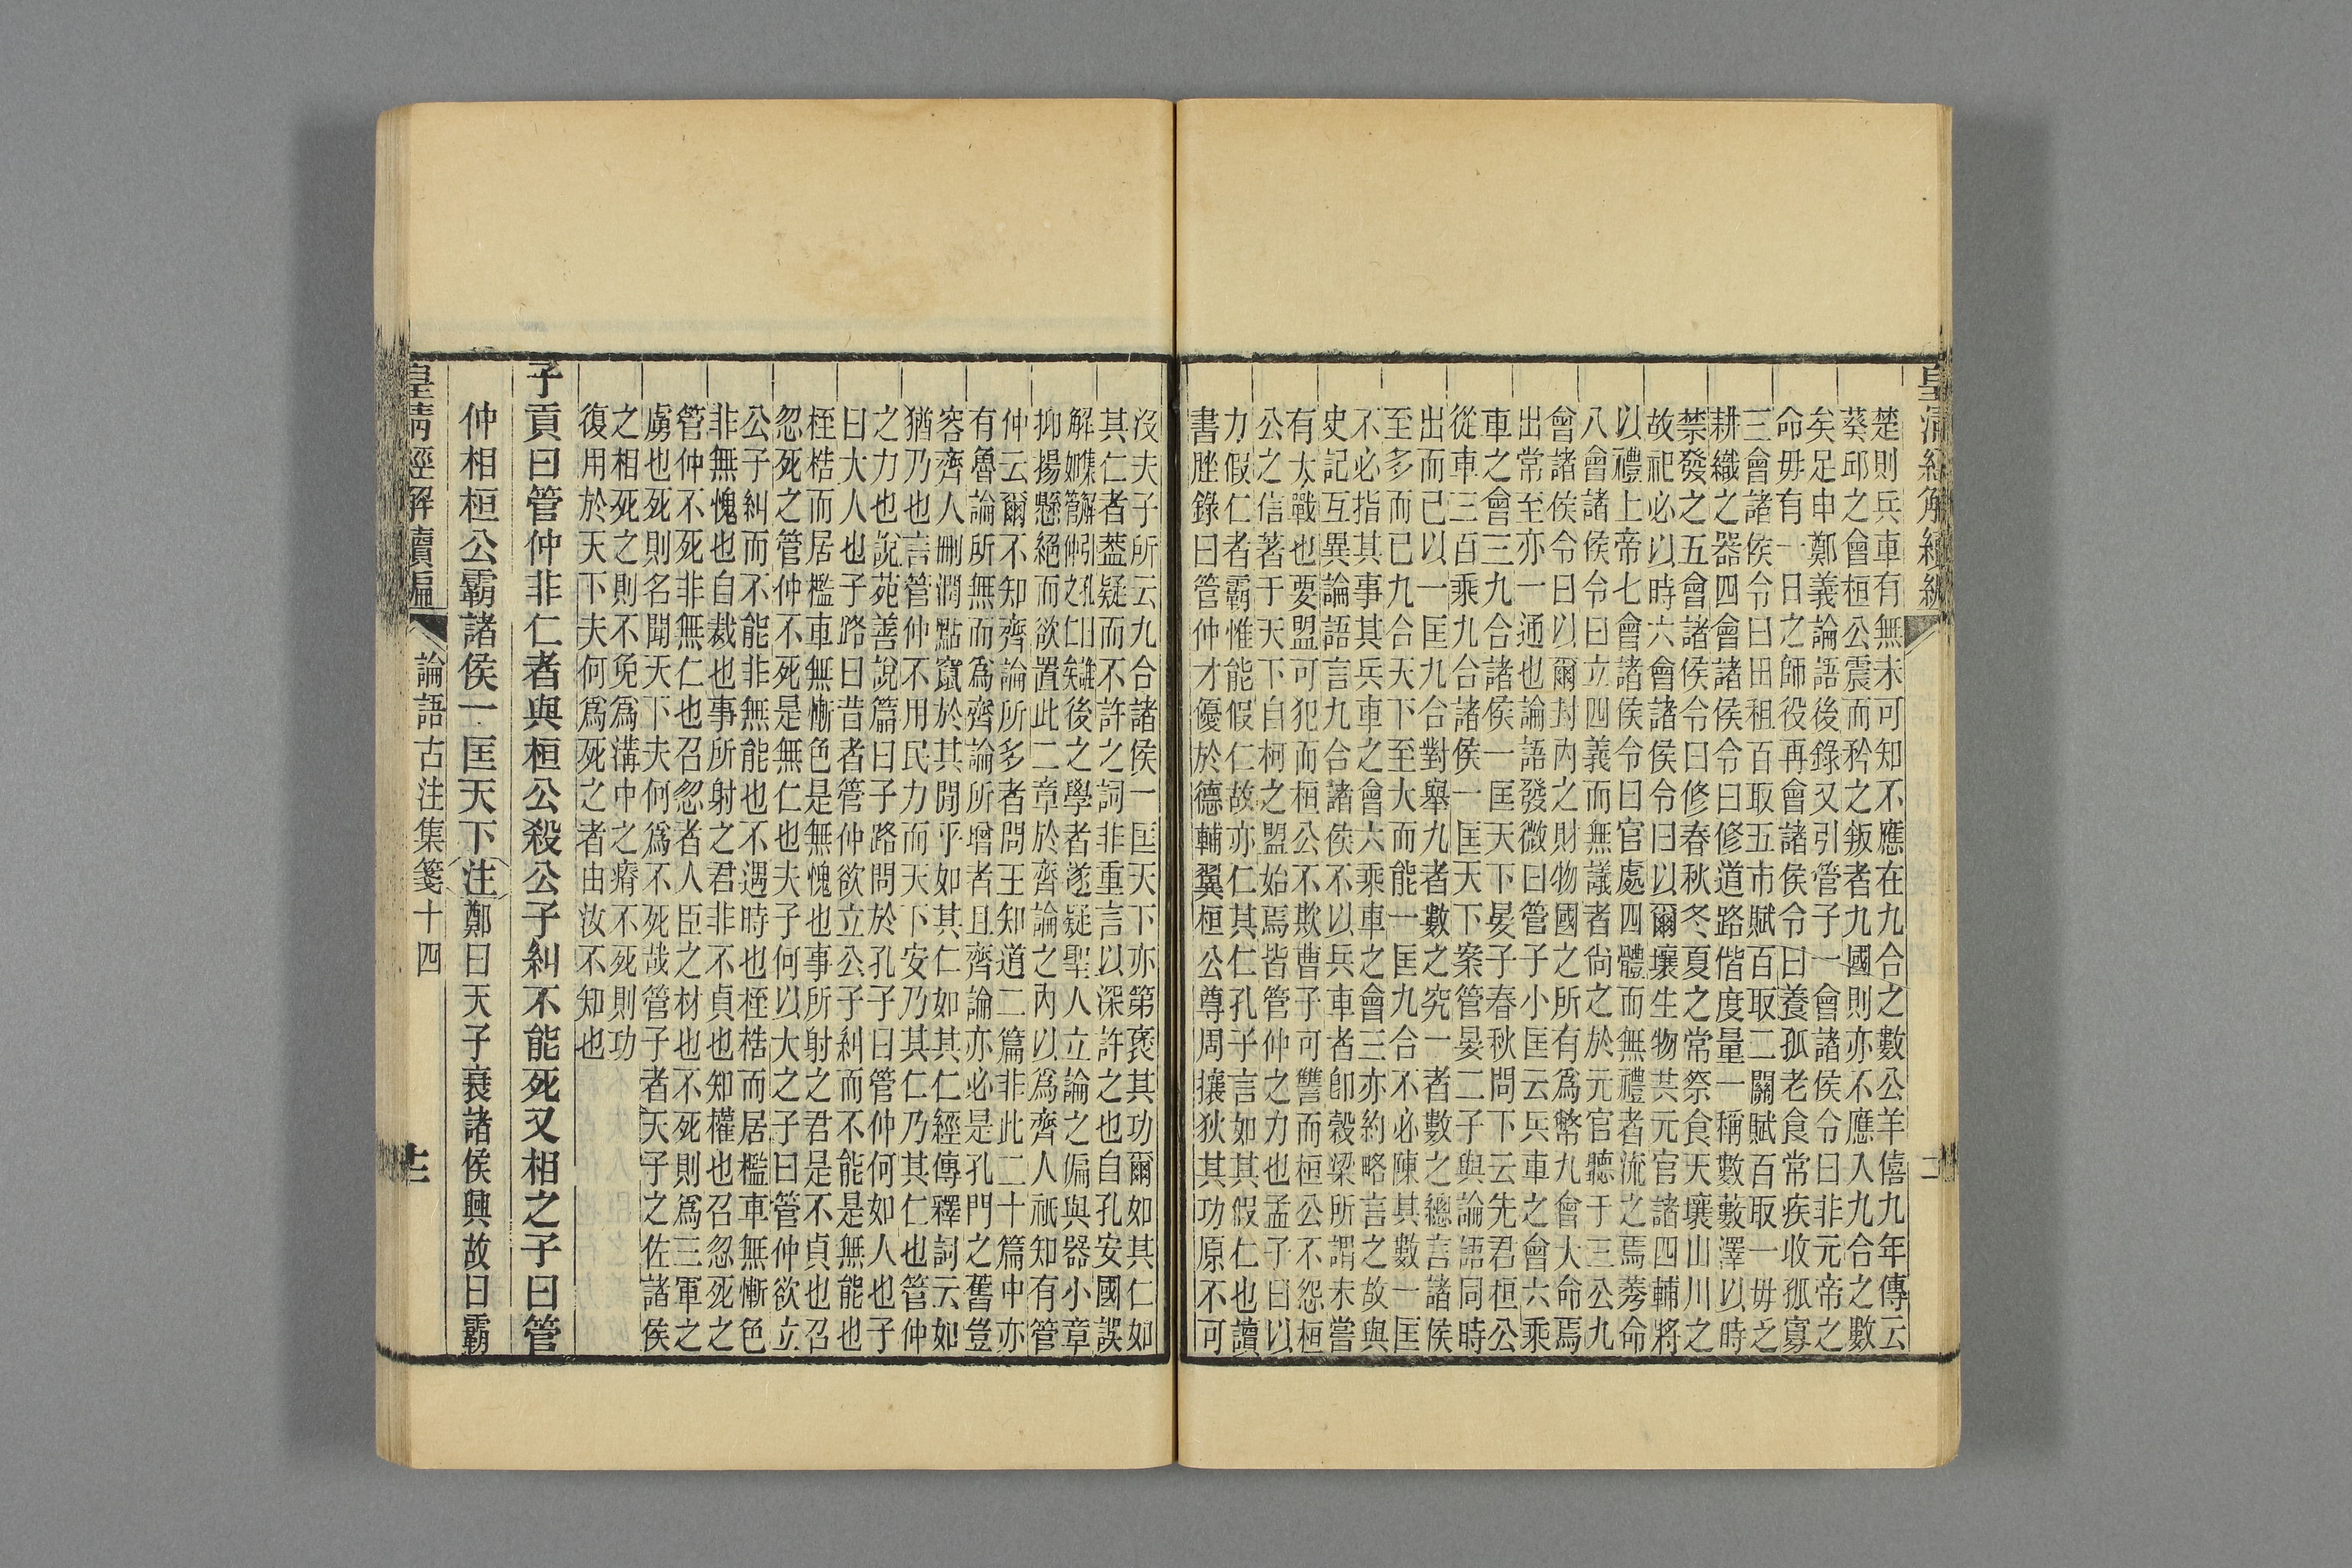 皇清經解續編
二
楚則兵車有無未可知不應在九合之數公羊僖九年傳云
葵邱之會桓公震而矜之叛者九國則亦不應入九合之數
矣足申鄭義論語後錄又引管子一會諸侯令曰非元帝之
命毋有一日之師役再會諸侯令曰養孤老食常疾收孤寡
三會諸侯令曰田租百取五市賦百取二關賦百取一毋乏
耕織之器四會諸侯令曰修道路偕度量一稱數藪澤以時
禁發之五會諸侯令曰修春秋冬夏之常祭食天壤山川之
故祀必以時六會諸侯令曰以爾壤生物共元官請四輔將
以禮上帝七會諸侯令曰官處四體而無禮者流之焉莠命
八會諸侯令曰立四義而無議者尙之於元官聽于三公九
會諸侯令曰以爾封內之財物國之所有爲幣九會大命焉
出常至亦一通也論語發微曰管子小匡云兵車之會六乘
車之會三九合諸侯一匡天下晏子春秋問下云先君桓公
從車三百乘九合諸侯一匡天下案管晏二子與論語同時
出而已以一匡九合對舉九者數之究一者數之總言諸侯
至多而已九合天下至大而能一匡九合不必陳其數一匡
不必指其事其兵車之會六乘車之會三亦約略言之故與
史記互異論語言九合諸侯不以兵車者卽穀梁所謂未嘗
有大戰也要盟可犯而桓公不欺曹子可讐而桓公不怨桓
公之信著于天下自柯之盟始焉皆管仲之力也孟子曰以
力假仁者霸惟能假仁故亦仁其仁孔子言如其假仁也讀
書脞錄曰管仲才優於德輔翼桓公尊周攘狄其功原不可
沒夫子所云九合諸侯一匡天下亦第褒其功爾如其仁如
其仁者葢疑而不許之詞非重言以深許之也自孔安國誤
解如其仁爲誰如管仲之仁矣後之學者遂疑聖人立論之偏與器小章
抑揚懸絕而欲置此二章於齊論之內以爲齊人祇知有管
仲云爾不知齊論所多者問王知道二篇非此二十篇中亦
有魯論所無而爲齊論所增者且齊論亦必是孔門之舊豈
容齊人刪潤點竄於其閒乎如其仁如其仁經傳釋詞云如
猶乃也言管仲不用民力而天下安乃其仁乃其仁也管仲
之力也說苑善說篇曰子路問於孔子曰管仲何如人也子
曰大人也子路曰昔者管仲欲立公子糾而不能是無能也
桎梏而居檻車無慚色是無愧也事所射之君是不貞也召
忽死之管仲不死是無仁也夫子何以大之子曰管仲欲立
公子糾而不能非無能也不遇時也桎梏而居檻車無慚色
非無愧也自裁也事所射之君非不貞也知權也召忽死之
管仲不死非無仁也召忽者人臣之材也不死則爲三軍之
虜也死則名聞天下夫何爲不死哉管子者天子之佐諸侯
之相死之則不免爲溝中之瘠不死則功
復用於天下夫何爲死之者由汝不知也
子貢曰管仲非仁者與桓公殺公子糾不能死又相之子曰管
仲相桓公霸諸侯一匡天下注鄭曰天子衰諸侯興故曰霸
皇淸經解續編
論語古注集箋十四